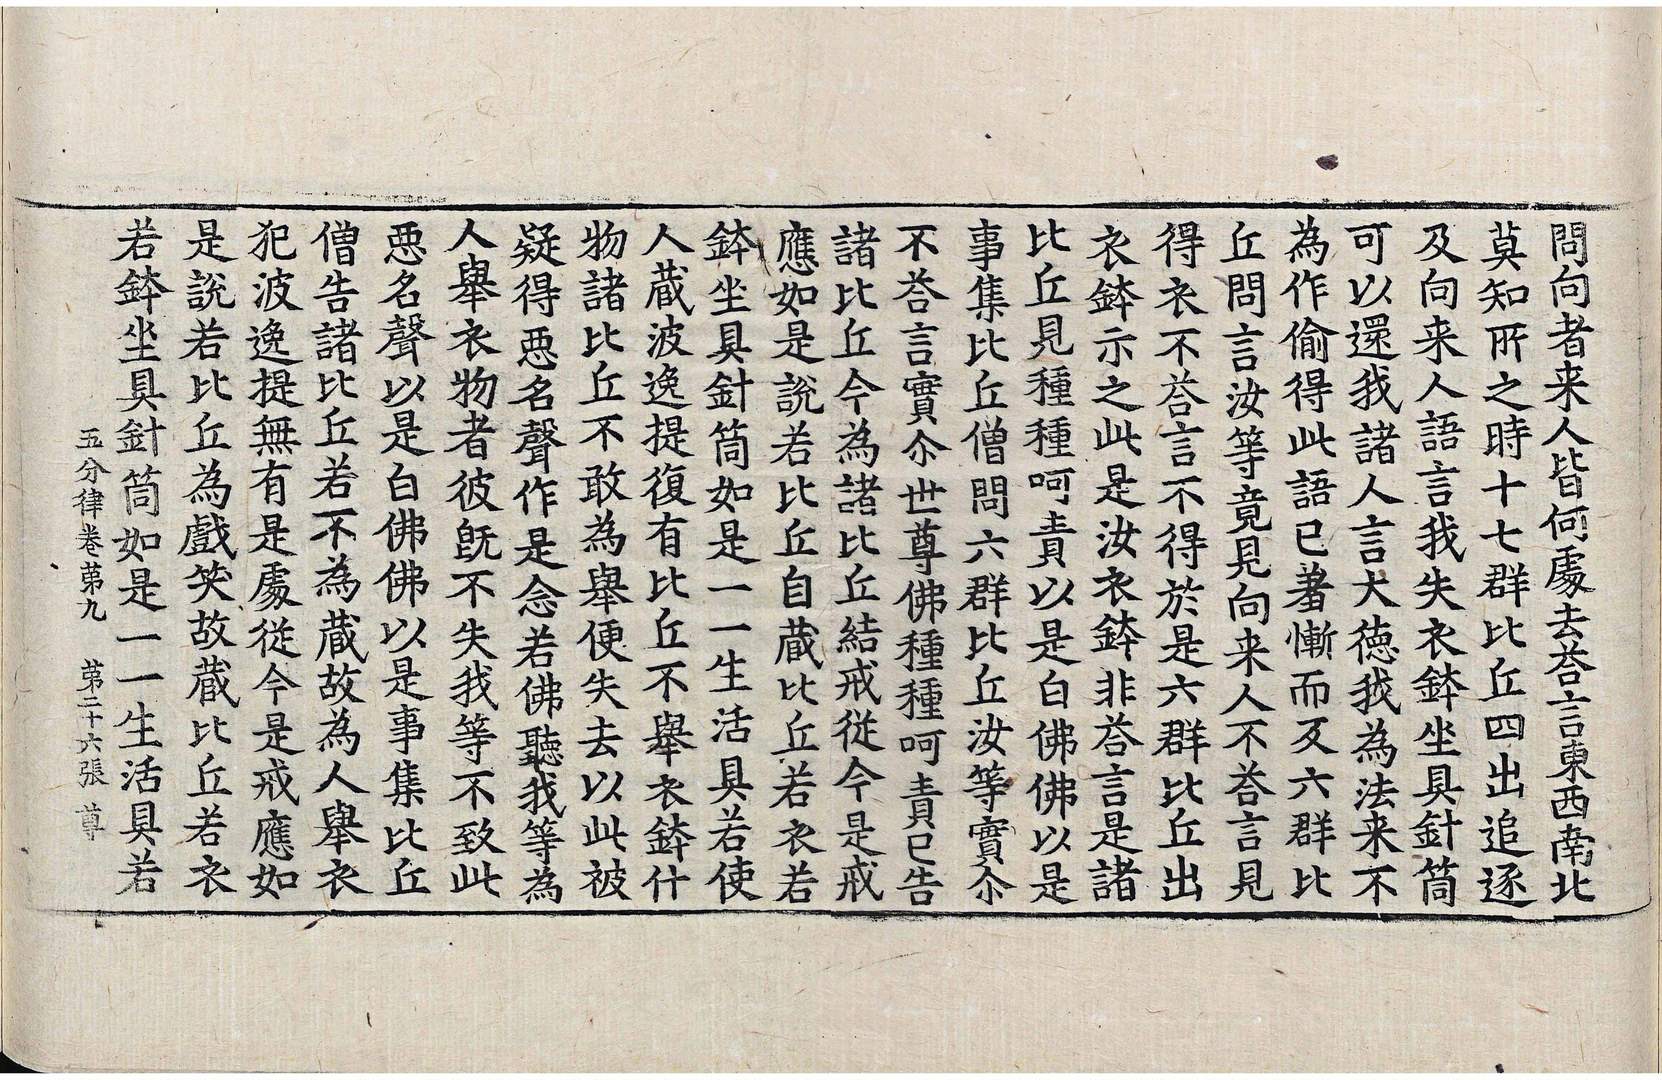 問向者来人皆何處去荅言東西南北
莫知所之時十七群比丘四出追逐
及向来人語言我失衣鉢坐具針筒
可以還我諸人言大德我為法来不
為作偷得此語已羞慚而反六群比
丘問言汝等竟見向来人不荅言見
得衣不荅言不得於是六群比丘出
衣鉢示之此是汝衣鉢非荅言是諸
比丘見種種呵責以是白佛佛以是
事集比丘僧問六群比丘汝等實尒
不荅言實尒世尊佛種種呵責已告
諸比丘今為諸比丘結戒従今是戒
應如是說若比丘自蔵比丘若衣若
鉢坐具針筒如是一一生活具若使
人蔵波逸提復有比丘不舉衣鉢什
物諸比丘不敢為舉便失去以此被
疑得惡名聲作是念若佛聽我等為
人舉衣物者彼既不失我等不致此
惡名聲以是白佛佛以是事集比丘
僧告諸比丘若不為蔵故為人舉衣
犯波逸提無有是處従今是戒應如
是說若比丘為戲笑故蔵比丘若衣
若鉢坐具針筒如是一一生活具若
五分律卷第九 第二十六張 尊